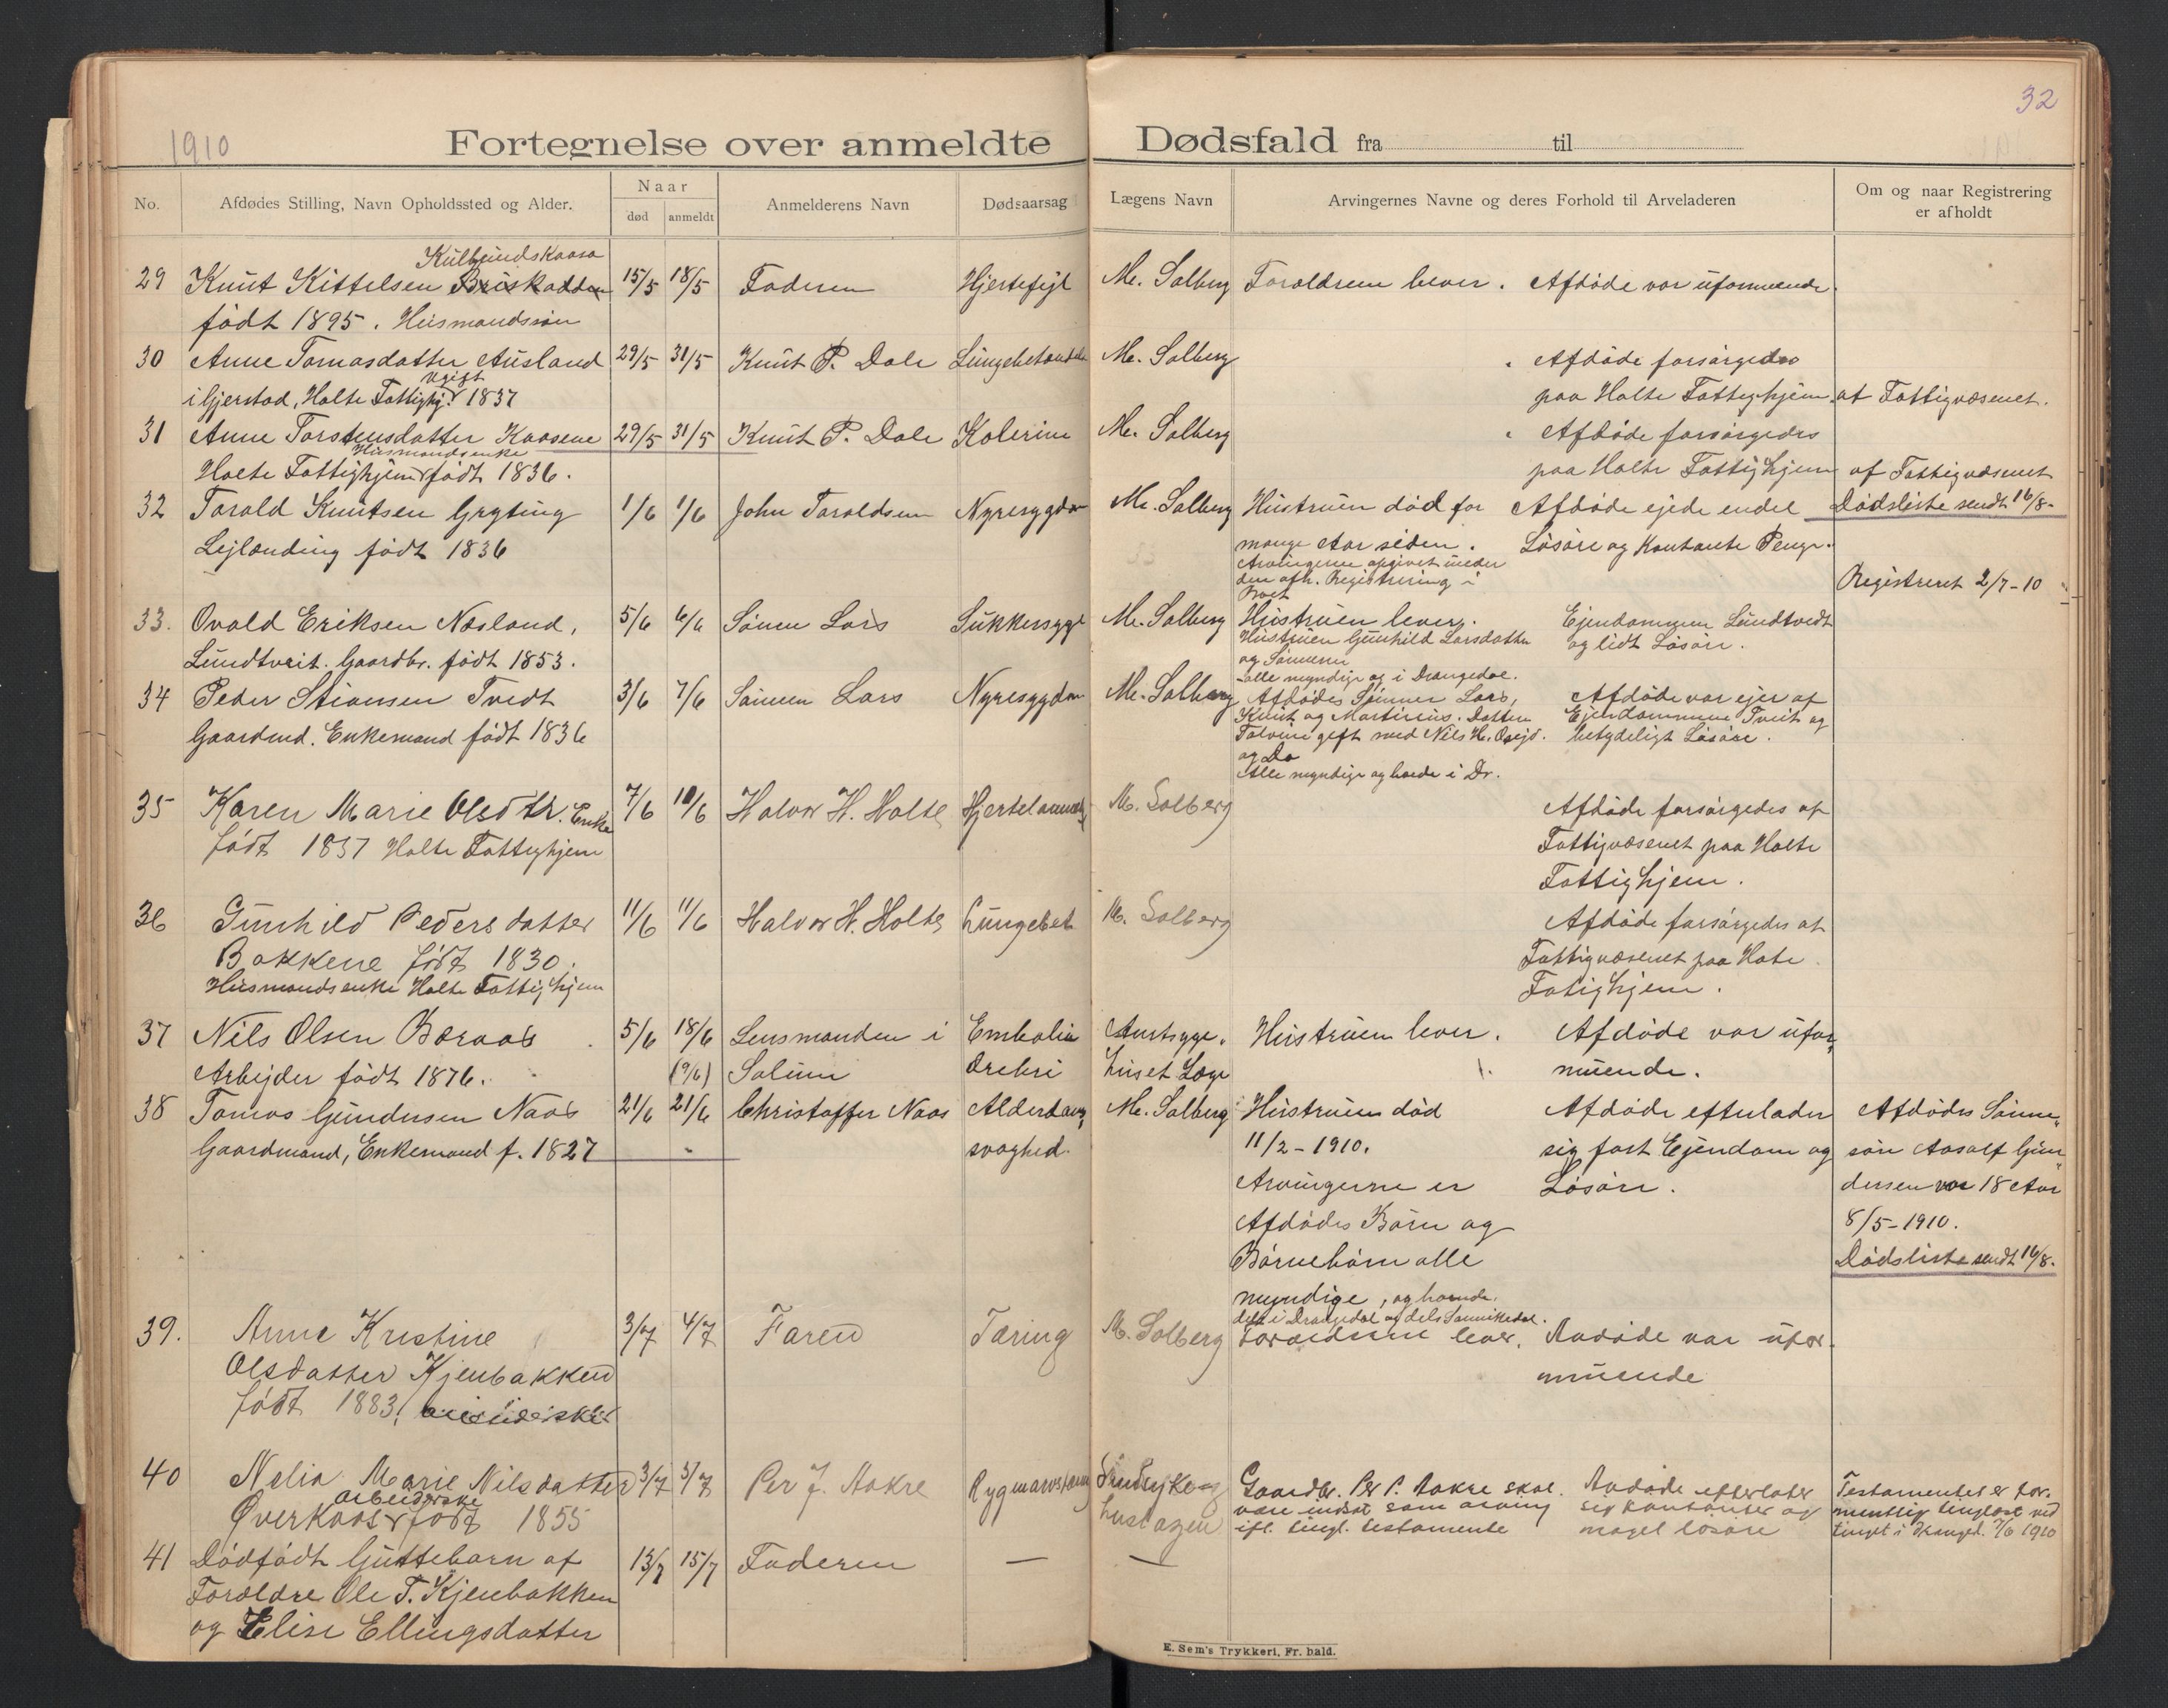 32
1910
Fortegnelse over anmeldte Dødsfald fra til
No.
Afdødes Stilling, Navn Opholdssted og Alder.
Naar
død
anmeldt
Anmelderens Navn
Dødsaarsag
Lægens Navn
Arvingernes Navne og deres Forhold til Arveladeren
Om og naar Registrering
er afholdt
Külbundskaasa
29 Knut Kittelsen Briskodden 15/5 18/5 Faderen Hjertefejl M. Solberg Forældrene lever. Afdøde var uformuende.
født 1895. Husmandssøn
30 Anne Tomasdatter Ausland 29/5 31/5 Knut P. Dale Lungebetændelse M. Solberg Afdøde forsørgedes
ugift
i Gjerstad, Holte Fattighj. 1837 paa Holte Fattighjem af Fattigvæsenet.
31 Anne Torstensdatter Kaasene 29/5 31/5 Knut P. Dale Kolerine M. Solberg Afdøde forsørgedes
Husmandsenke
Holte Fattighjem født 1836. paa Holte Fattighjem af Fattigvæsenet
32 Tarald Knutsen Gryting 1/6 1/6 John Taraldsen Nyresygdom M. Solberg Hustruen død for Afdøde ejede endel Dødsliste sendt 16/8.
Lejlænding født 1836 mange Aar siden. Løsøre og Kontante Penge.
Arvingerne opgivet under
den afh. Registrering i
Boet
Registreret 2/7-10
33. Ovald Eriksen Næsland, 5/6 6/6 Sønnen Lars Sukkersyge M. Solberg Hustruen lever. Ejendommen Lundtvedt
Lundtveit. Gaardbr. født 1853. Hustruen Gunhild Larsdatter og lidt Løsøre.
og Sønnerne
alle myndige og i Drangedal.
34 Peder Stiansen Tvedt 3/6 7/6 Sønnen Lars Nyresygdom M. Solberg Afdødes Sønner Lars, Afdøde var ejer af
Gaardmd. Enkemand født 1836 Knut og Martinius. Datteren Ejendommene Tveit og
Tolvine gift med Nils H. betydeligt Løsøre.
og Do
Alle myndige og boende i Dr.
35 Karen Marie Olsdtr. Enke 7/6 10/6 Halvor H. Holte Hjertelammelse M. Solberg Afdøde forsørgedes af
født 1837 Holte Fattighjem Fattigvæsenet paa Holte
Fattighjem.
36 Gunhild Pedersdatter 11/6 11/6 Halvor H. Holte Lungebet M. Solberg Afdøde forsørgedes af
Bakkene født 1830. Fattigvæsenet paa Hote
Husmandsenke Holte Fattighjem Fatighjem.
37 Nils Olsen Boraas 5/6 18/6 Lensmanden i Embolia Amtsyge- Hustruen lever. Afdøde var ufor-
Arbejder født 1876. (9/6) Solum huset Læge muende.
38 Tomas Gundersen Naas 21/6 21/6 Christoffer Naas Alderdoms- M. Solberg Hustruen død Afdøde efterlader Afdødes Sønne-
Gaardmand, Enkemand f. 1827 svaghed. 11/2-1910. sig fast Ejendom og søn Aasalf Gun-
Arvingerne er Løsøre. dersen var 18 Aar
Afdødes Børn og 8/5-1910.
Børnebørn alle Dødsliste sendt 16/8.
myndige, og boende
dels i Drangedal og dels Sannikedal.
39. Anne Kristine 3/7 4/7 Faren Tæring M. Solberg Forældrene lever. Avdøde var ufor-
Olsdatter Kjenbakken muende
født 1883.
40 Nelia Marie Nilsdatter 3/7 3/7 Per J. Aakre Rygmarvs Gaardbr. Per P. Aakre skal Avdøde efterlater Testamentet er for-
arbeiderske
Øverkaas født 1855 være indsat som arving sig kontanter og mentlig tinglæst ved
ifl. tingl. testamente noget løsøre tinget i Dranged. 7/6 1910
41 Dødfødt Guttebarn af 13/7 15/7 Faderen — —
Forældre Ole T. Kjenbakken
og Elise Ellingsdatter
E. Sem's Trykkeri, Fr. hald.